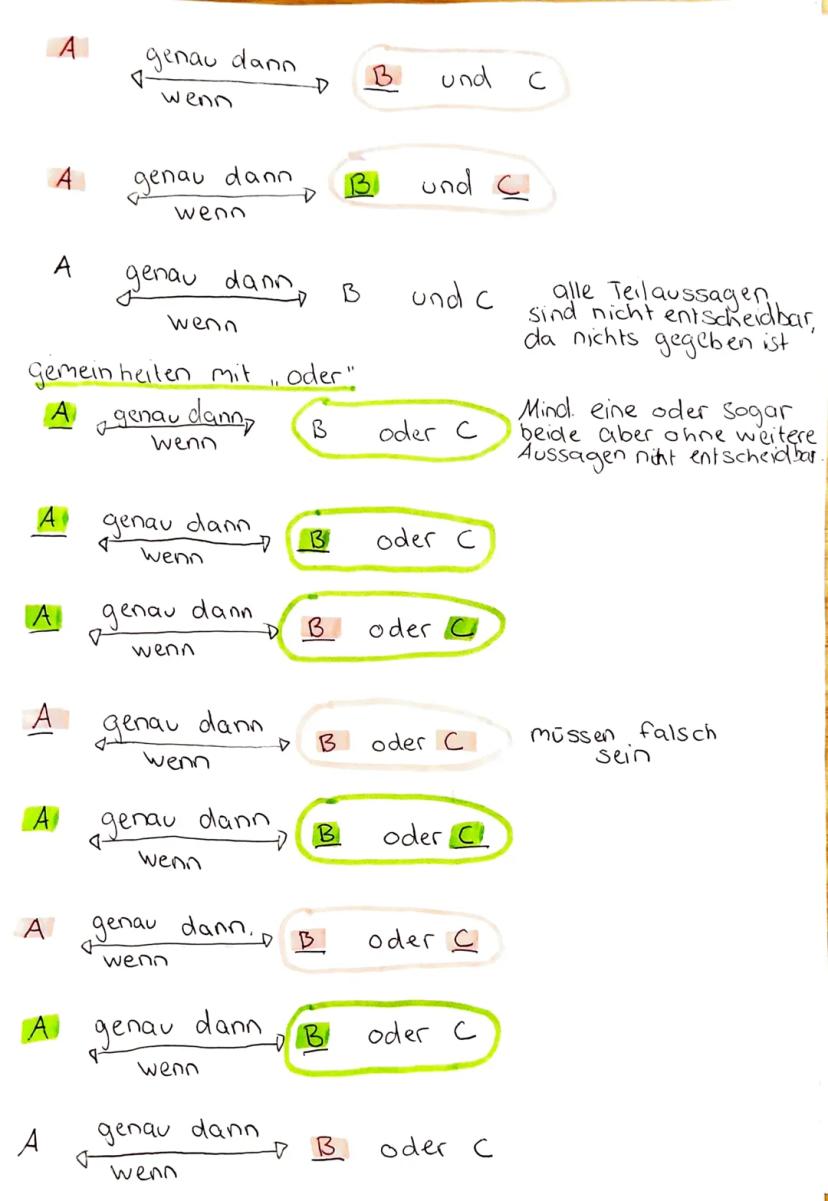 A genau dann wenn B und C
A genau dann wenn B und C
A genau dann wenn B und C alle Teilaussagen
sind nicht entscheidbar,
da nichts gegeben ist
Gemeinheiten mit „oder"
A genau dann wenn B oder C Mind. eine oder sogar
beide aber ohne weitere
Aussagen nicht entscheidbar.
A genau dann wenn B oder C
A genau dann wenn B oder C
A genau dann wenn B oder C müssen falsch
sein
A genau dann wenn B oder C
A genau dann wenn B oder C
A genau dann wenn B oder C
A genau dann wenn B oder C